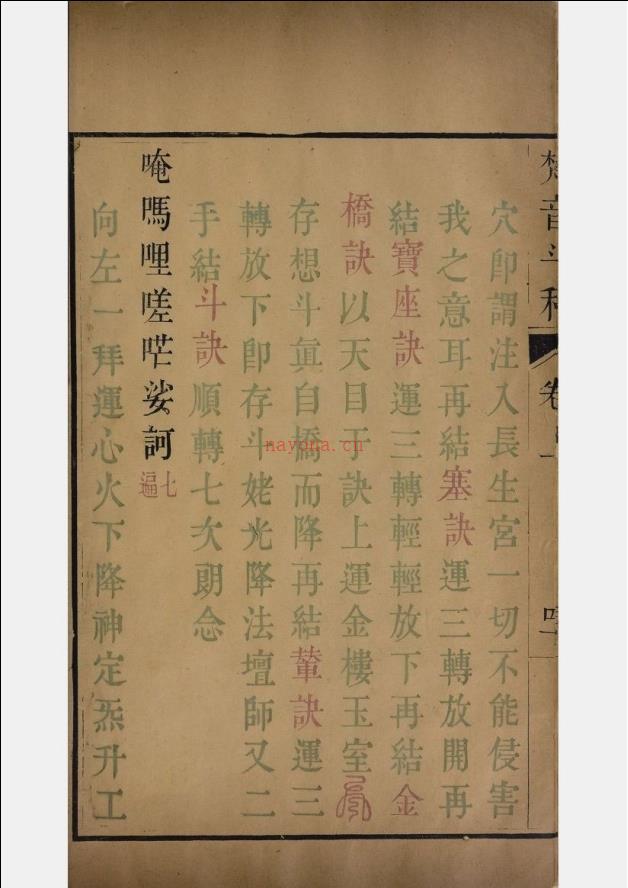 梵音斗科
卷
穴卽謂注入長生宮一切不能侵害
我之意耳再結塞訣運三轉放開再
結寶座訣運三轉輕輕放下再結金
橋訣以天目于訣上運金樓玉室
存想斗眞自橋而降再結輦訣運三
轉放下卽存斗姥光降法壇師又二
手結斗訣順轉七次朗念
唵嗎哩嗟𠴦娑訶七遍
向左一拜運心火下降神定炁升工
nayona.cn